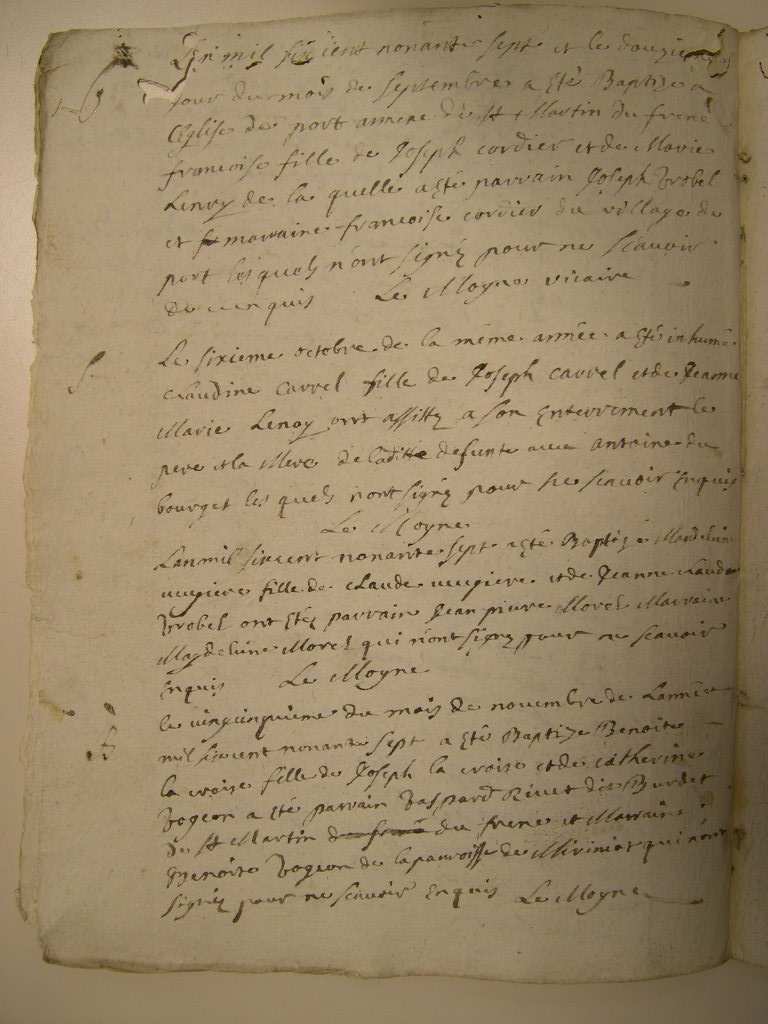 L'an mil six cent nonante sept et le douzieme
jour du mois de septembre a esté Baptizé a
l'eglise de port annexe de st Martin du frene
francoise fille de Joseph cordier et de Marie
Lenoy de la quelle a esté parrain Joseph
et marraine francoise cordier du village de
port les quels n'ont signéz pour ne scavoir
de ce enquis Le Moyne vicaire
B
Le sixieme octobre de la même année a esté inhumé
S
claudine carrel fille de Joseph carrel et de Jeanne
Marie Lenoy ont assisté a son enterrement le
pere et la Mere de laditte defunte avec antoine du
bourget les quels n'ont signéz pour ne scavoir enquis
Le Moyne
L'an mil six cent nonante sept a esté Baptizé
fille de claude et de Jeanne claude
ont estéz parrain Jean pierre Morel Marraine
Magdeleine Morel qui n'ont signéz pour ne scavoir
enquis Le Moyne
le vingcinquieme du mois de novembre de L'année
mil six cent nonante sept a esté Baptizé Benoite
B
la croise fille de Joseph la croise et de catherine
a esté parrain Rivet dit Burdet
de st Martin du frene et Marraine
Benoite de la parroisse de qui n'ont
signéz pour ne scavoir enquis Le Moyne